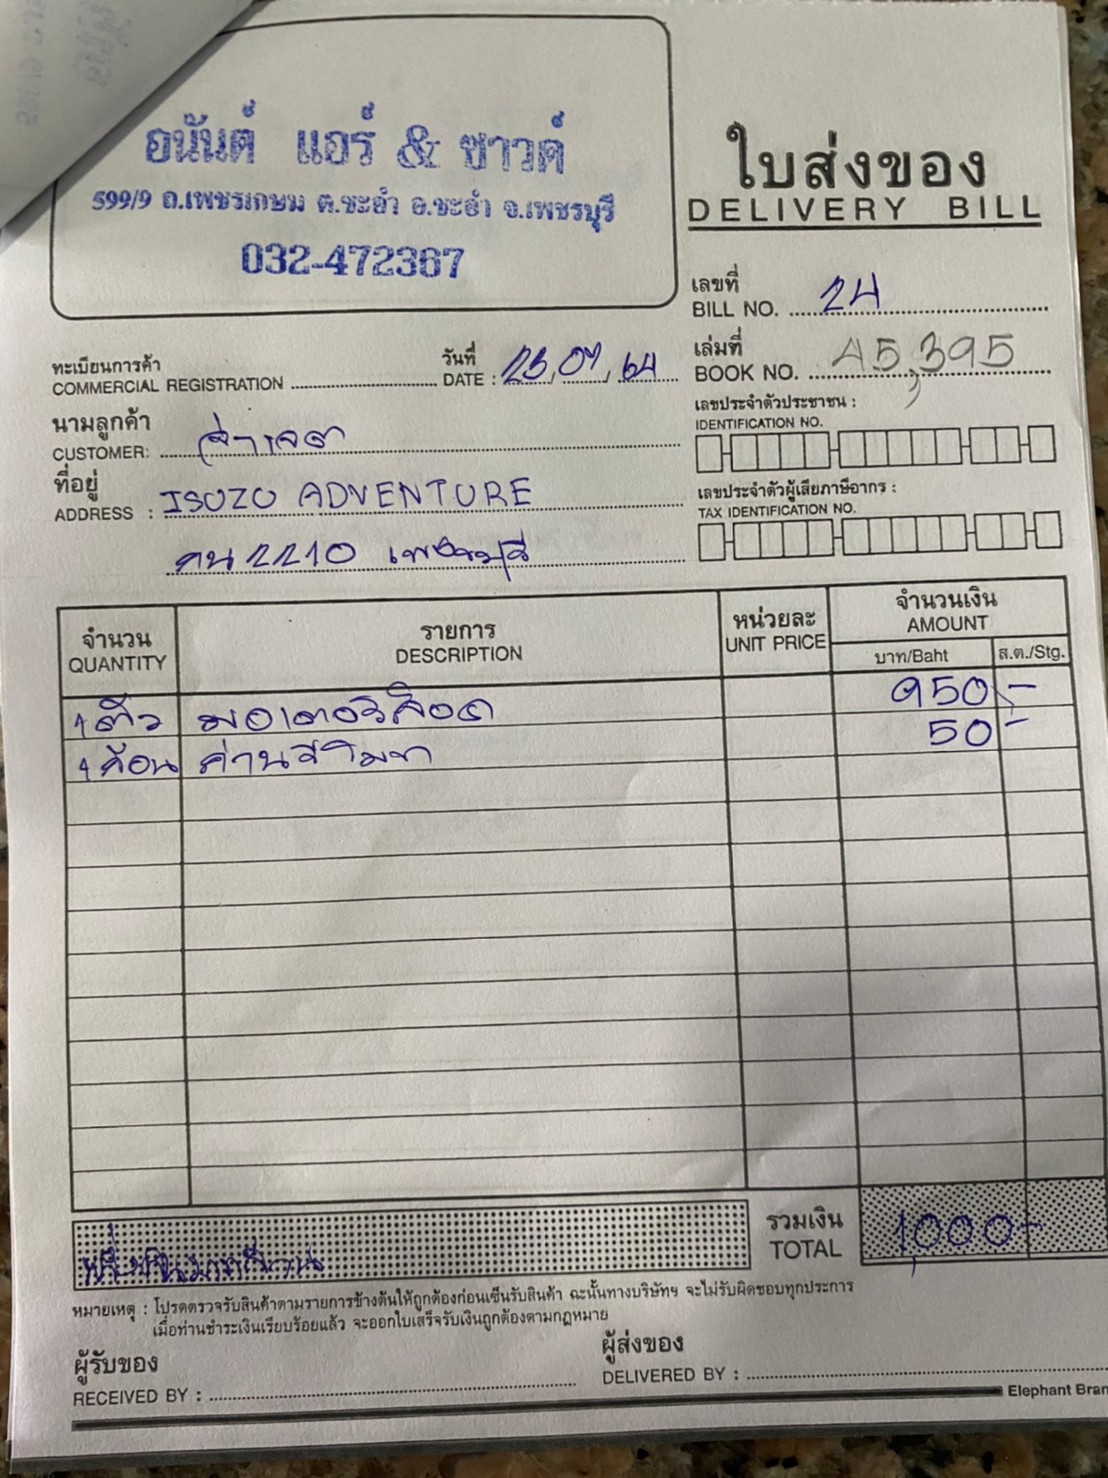 อนันต์ แอร์ & ซาวด์
599/9 ถ.เพชรเกษม ต.ชะอำ อ.ชะอำ จ.เพชรบุรี
032-472367
ใบส่งของ
DELIVERY BILL
เลขที่
BILL NO. 24
ทะเบียนการค้า
COMMERCIAL REGISTRATION
วันที่
DATE : 23, 07, 64
เล่มที่
BOOK NO. 45,395
นามลูกค้า
CUSTOMER: จ่าเจต
ที่อยู่
ADDRESS : ISUZU ADVENTURE
กน 2210 เพชรบุรี
เลขประจำตัวประชาชน :
IDENTIFICATION NO.
เลขประจำตัวผู้เสียภาษีอากร :
TAX IDENTIFICATION NO.
จำนวน รายการ หน่วยละ จำนวนเงิน
QUANTITY DESCRIPTION UNIT PRICE AMOUNT
บาท/Baht ส.ต./Stg.
1 ตัว มอเตอร์ล็อค 950 -
1 ก้อน ถ่านรีโมท 50 -
รวมเงิน
TOTAL 1,000 -
หมายเหตุ : โปรดตรวจรับสินค้าตามรายการข้างต้นให้ถูกต้องก่อนเซ็นรับสินค้า ฉะนั้นทางบริษัทฯ จะไม่รับผิดชอบทุกประการ
เมื่อท่านชำระเงินเรียบร้อยแล้ว จะออกใบเสร็จรับเงินถูกต้องตามกฎหมาย
ผู้รับของ
RECEIVED BY :
ผู้ส่งของ
DELIVERED BY :
Elephant Bran